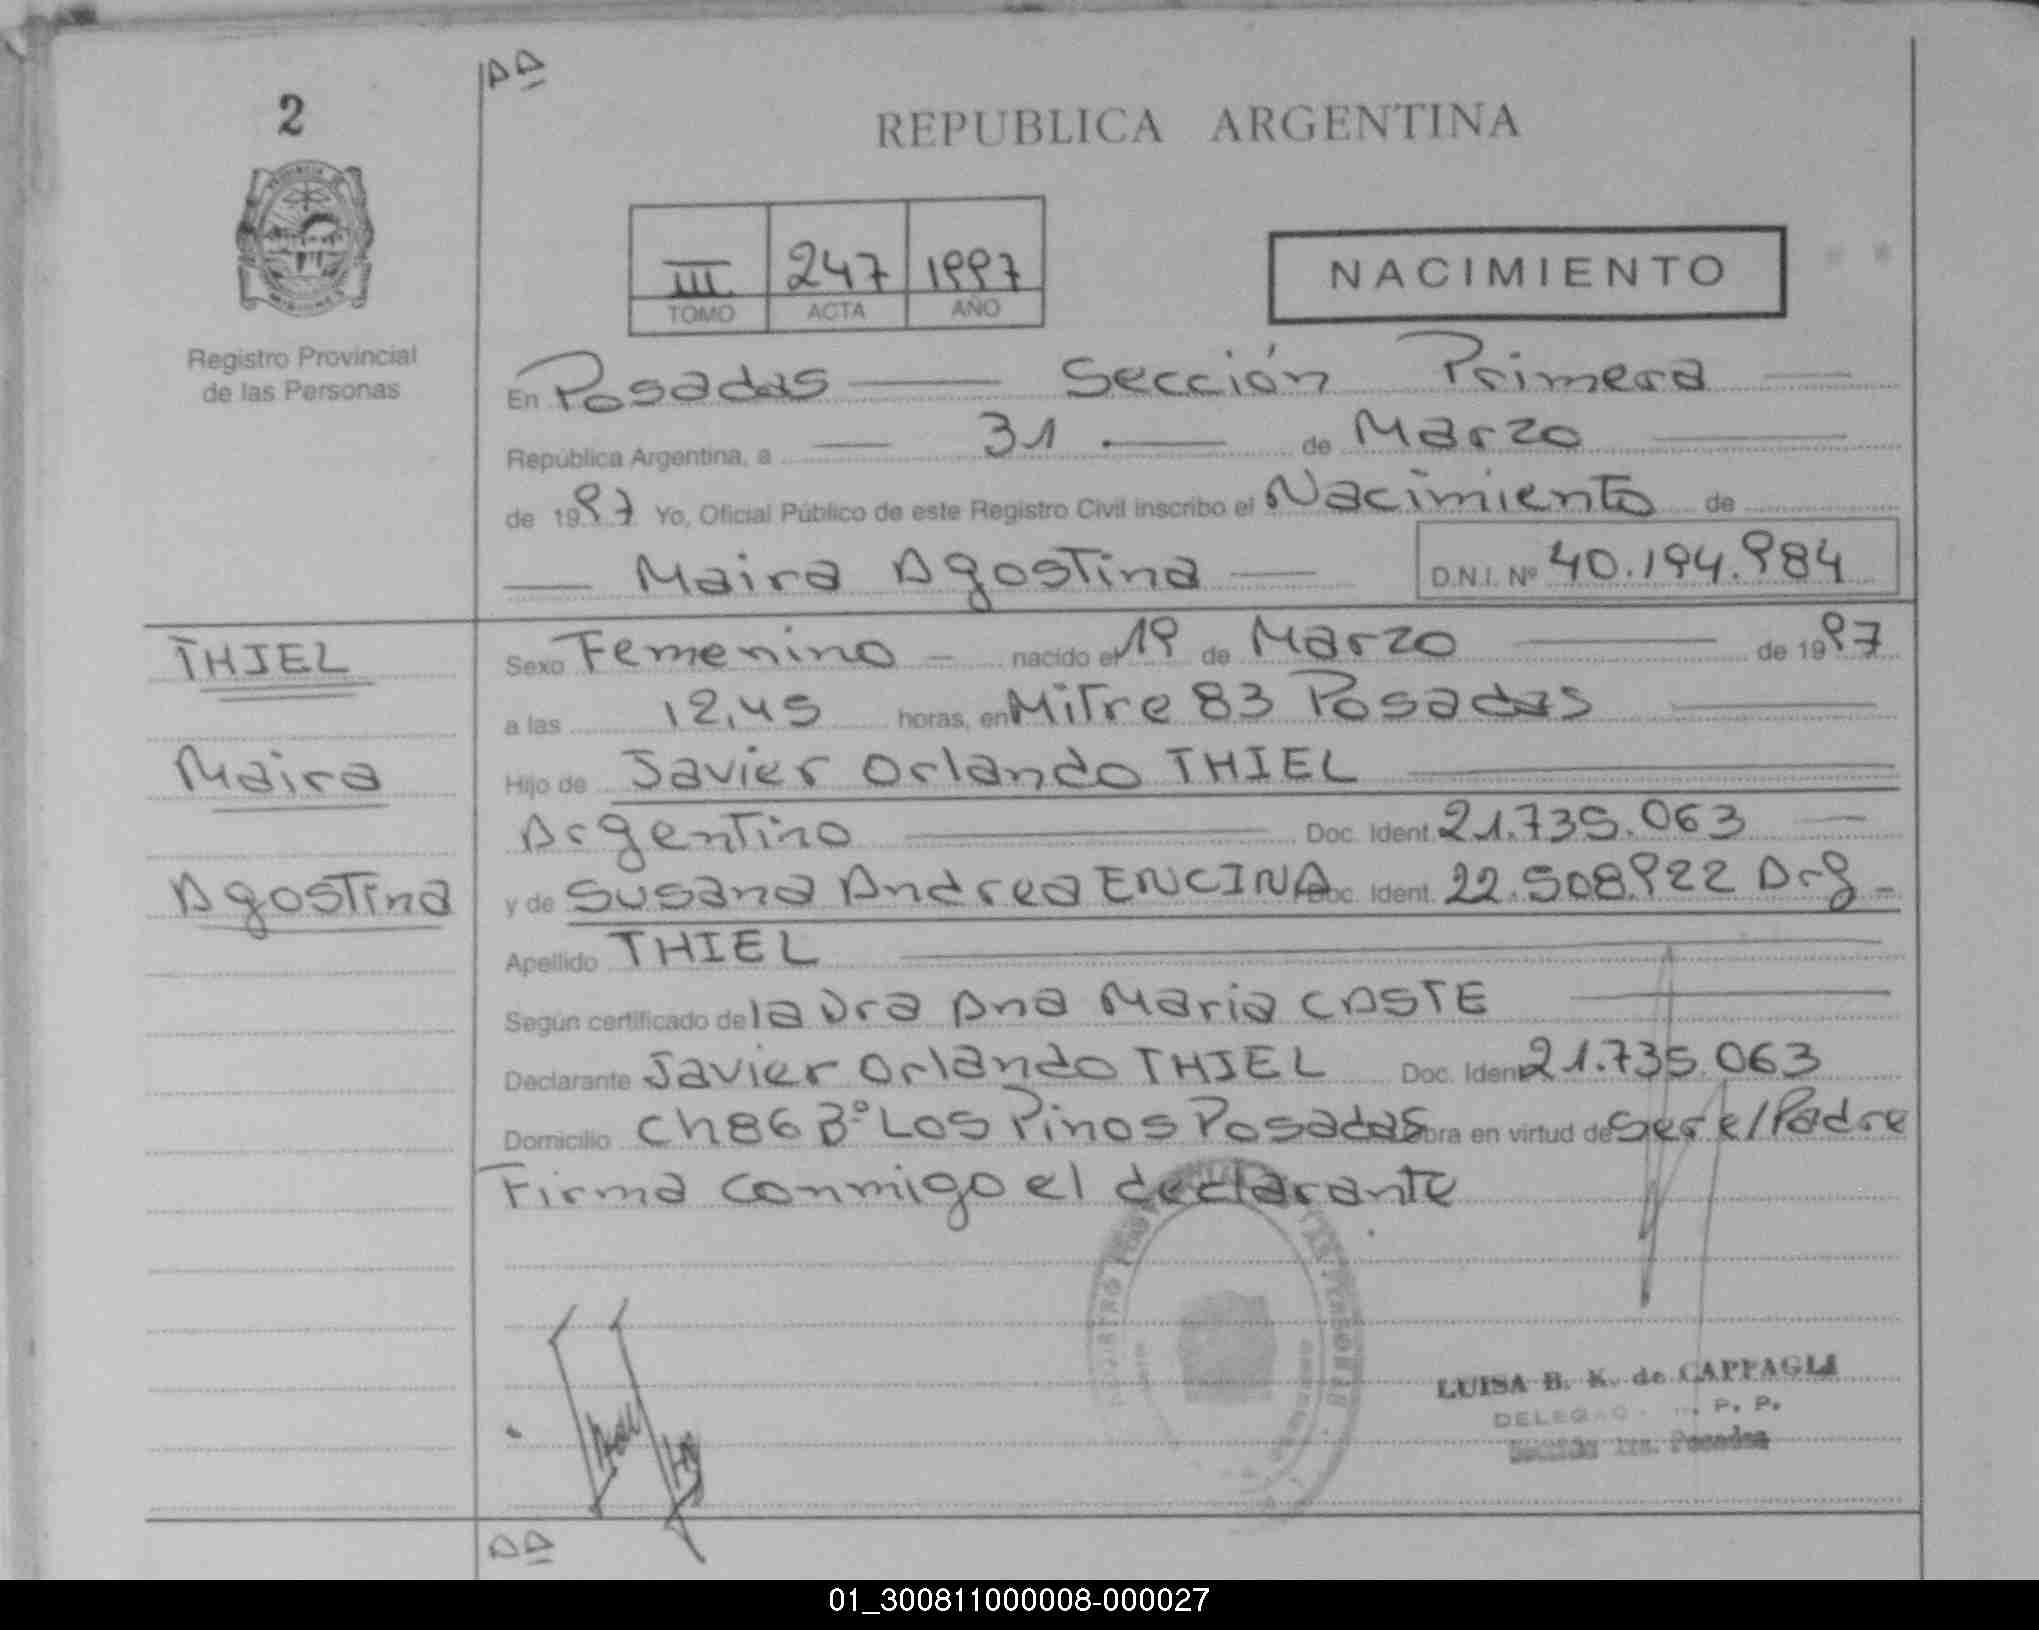 AA
2
REPUBLICA ARGENTINA
III 247 1997
TOMO ACTA AÑO
NACIMIENTO
Registro Provincial
de las Personas
En Posadas Sección Primera
Republica Argentina, a 31 de Marzo
de 1997 Yo, Oficial Público de este Registro Civil inscribo el Nacimiento de
Maira Agostina D.N.I. Nº 40.194.984
THIEL
Sexo Femenino nacido el 19 de Marzo de 1997
a las 12,45 horas, en Mitre 83 Posadas
Maira
Hijo de Javier Orlando THIEL
Argentino Doc. Ident. 21.735.063
Agostina
y de Susana Andrea ENCINA Doc. Ident. 22.508.922 Arg
Apellido THIEL
Según certificado de la Dra Ana Maria COSTE
Declarante Javier Orlando THIEL Doc. Ident 21.735.063
Domicilio Ch 86 Bº Los Pinos Posadas obra en virtud de ser el/Padre
Firma conmigo el declarante
LUISA B. K. de CAPPAGLI
P. P.
Posadas
AA
01_300811000008-000027